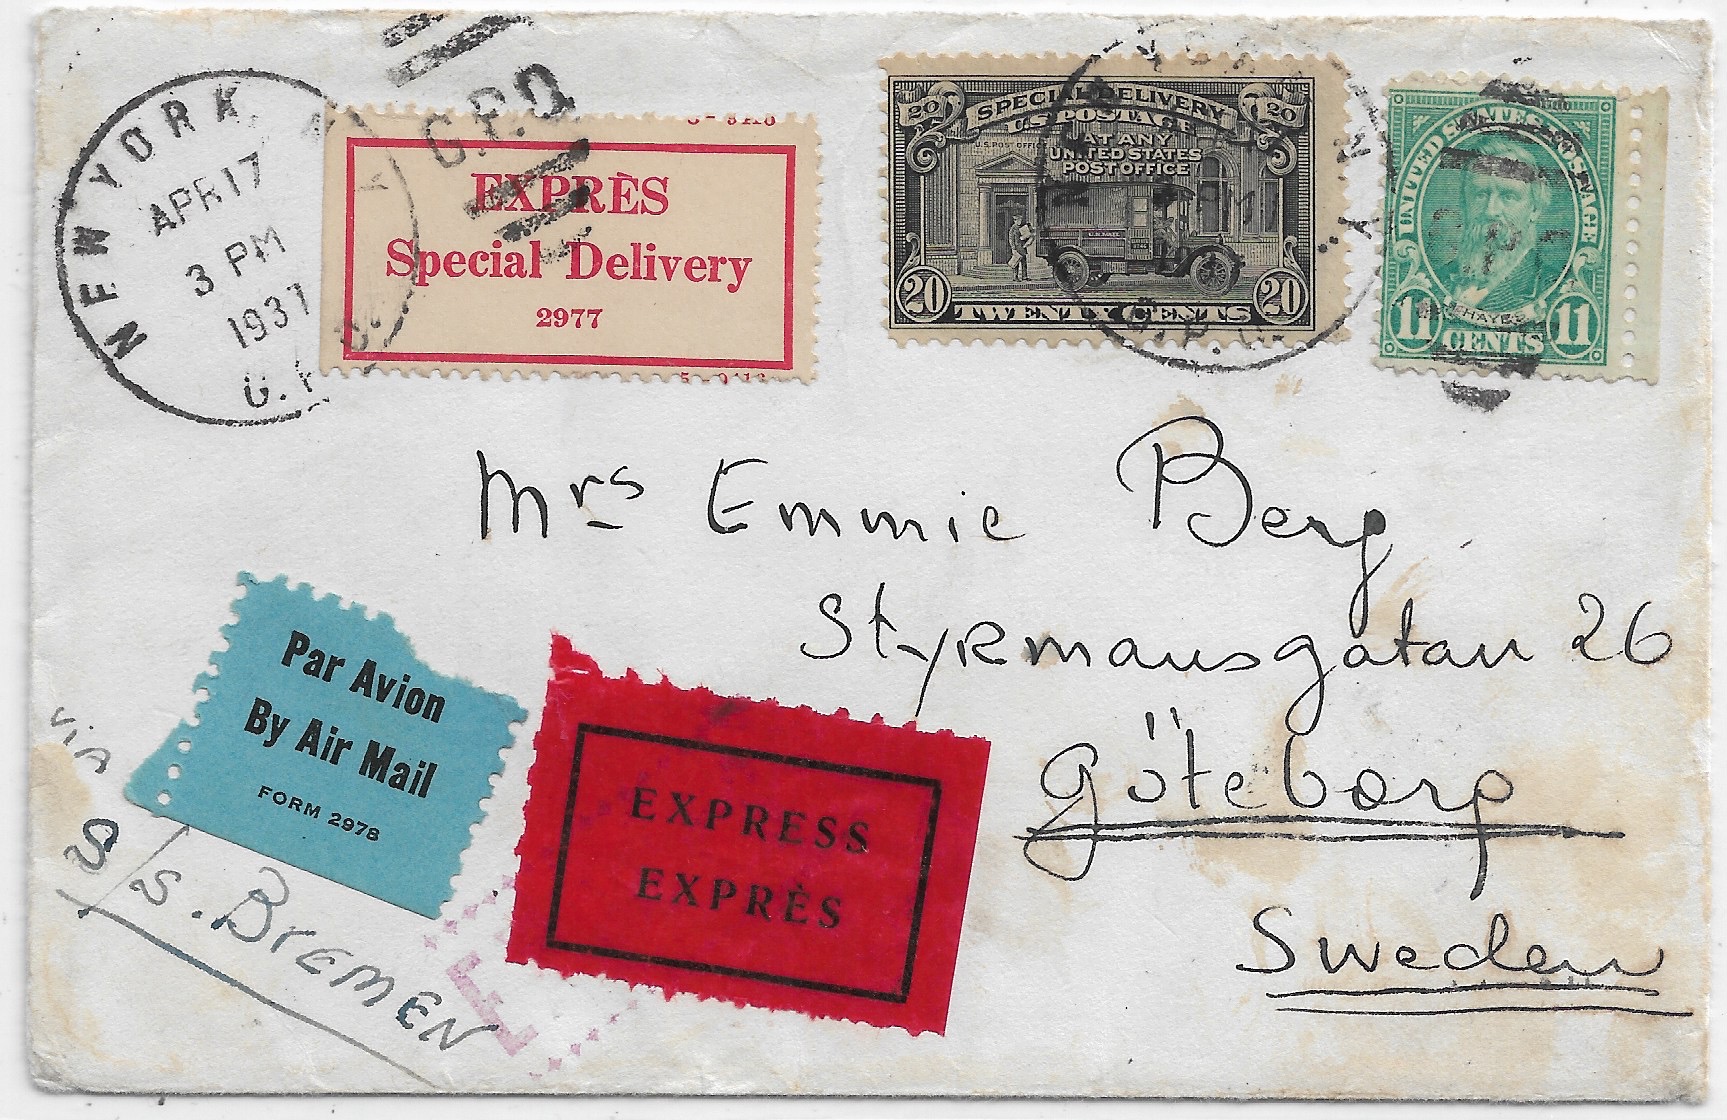 NEW YORK N.Y.
APR 17
3 PM
1937
G.P.O.
G.P.O.
EXPRÈS
Special Delivery
2977
20 SPECIAL DELIVERY 20
U.S. POSTAGE
AT ANY
UNITED STATES
POST OFFICE
U.S. POST OFFICE
U.S. MAIL
20 TWENTY CENTS 20
NEW YORK, N.Y.
G.P.O.
UNITED STATES POSTAGE
11 CENTS 11
Mrs Emmie Berg
Styrmansgatan 26
Göteborg
Sweden
Par Avion
By Air Mail
FORM 2978
EXPRESS
EXPRÈS
via
S/S. BREMEN